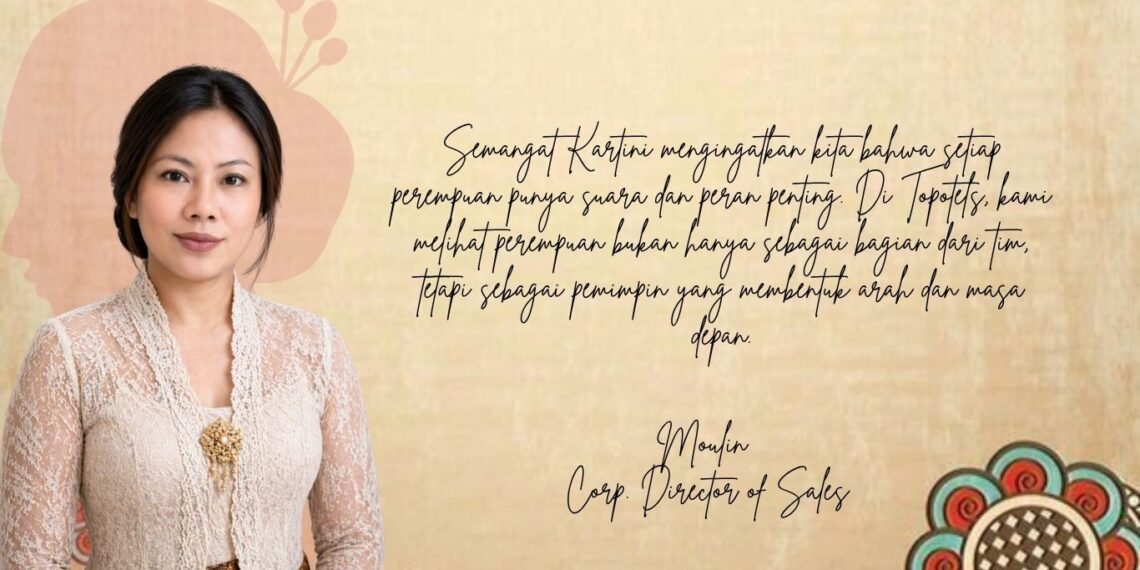 Semangat Kartini mengingatkan kita bahwa setiap
perempuan punya suara dan peran penting. Di Topotels, kami
melihat perempuan bukan hanya sebagai bagian dari tim,
tetapi sebagai pemimpin yang membentuk arah dan masa
depan.
Moulin
Corp. Director of Sales